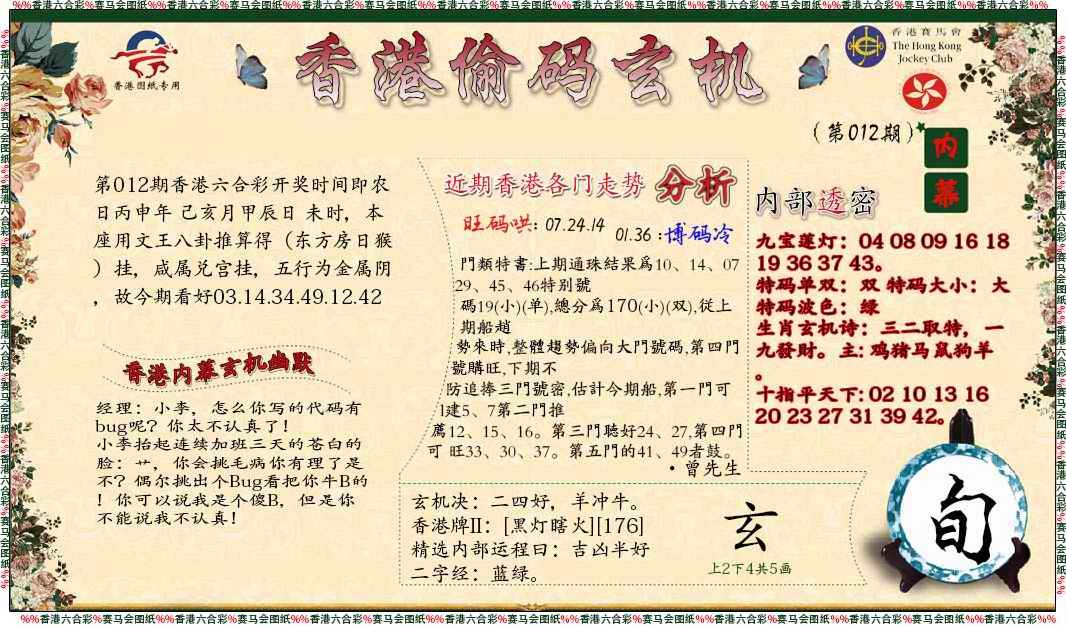 %%香港六合彩%赛马会图纸%%香港六合彩%赛马会图纸%%香港六合彩%赛马会图纸%%香港六合彩%赛马会图纸%%香港六合彩%赛马会图纸%%香港六合彩%赛马会图纸%%香港六合彩%%
香港图纸专用
香港偷码玄机
香港賽馬會
The Hong Kong
Jockey Club
（第012期）
内
幕
第012期香港六合彩开奖时间即农
日丙申年 己亥月甲辰日 未时，本
座用文王八卦推算得（东方房日猴
）挂，咸属兑宫挂，五行为金属阴
，故今期看好03.14.34.49.12.42
香港内幕玄机幽默
经理：小李，怎么你写的代码有
bug呢？你太不认真了！
小李抬起连续加班三天的苍白的
脸：艹，你会挑毛病你有理了是
不？偶尔挑出个Bug看把你牛B的
！你可以说我是个傻B，但是你
不能说我不认真！
近期香港各门走势 分析
旺码哄：07.24.14
01.36：博码冷
門類特書:上期通珠結果爲10、14、07
29、45、46特别號
碼19(小)(单),總分爲170(小)(双),從上
期船趙
勢來時,整體趨勢偏向大門號碼,第四門
號購旺,下期不
防追捧三門號密,估計今期船,第一門可
1建5、7第二門推
薦12、15、16。第三門聴好24、27,第四門
可 旺33、30、37。第五門的41、49者鼓。
·曾先生
内部透密
九宝莲灯：04 08 09 16 18
19 36 37 43。
特码单双：双 特码大小：大
特码波色：绿
生肖玄机诗：三二取特，一
九發財。主: 鸡猪马鼠狗羊
。
十指平天下: 02 10 13 16
20 23 27 31 39 42。
玄机决：二四好，羊冲牛。
香港牌II：[黑灯瞎火][176]
精选内部运程曰：吉凶半好
二字经：蓝绿。
玄
上2下4共5画
旬
%%香港六合彩%赛马会图纸%%香港六合彩%赛马会图纸%%香港六合彩%赛马会图纸%%香港六合彩%赛马会图纸%%香港六合彩%赛马会图纸%%香港六合彩%赛马会图纸%%香港六合彩%%